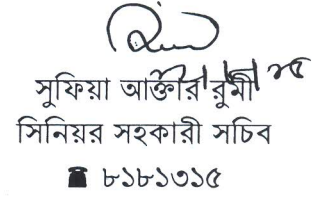 সুফিয়া আক্তার রুমী
সিনিয়র সহকারী সচিব
☎ ৮১৮১৩১৫